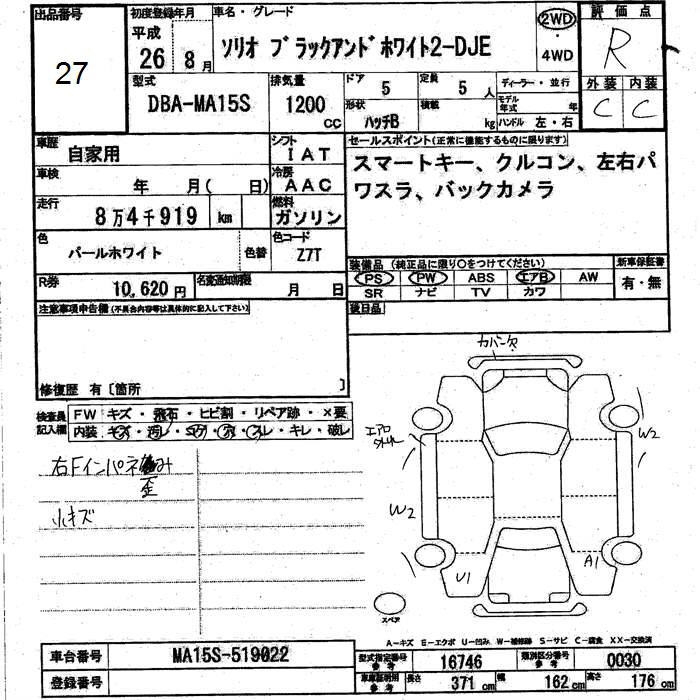 出品番号
27
初度登録年月
平成 26年 8月
車名・グレード
ソリオ ブラックアンドホワイト2-DJE
2WD
・
4WD
評価点
R
外装 内装
C C
型式
DBA-MA15S
排気量
1200 cc
ドア
5
定員
5人
形状
ハッチB
積載
kg
ディーラー・並行
モデル年式 年
ハンドル 左・右
車歴
自家用
シフト
IAT
車検
年 月( 日)
冷房
AAC
走行
8万4千919 km
燃料
ガソリン
色
パールホワイト
色替
色コード
Z7T
R券
10,620円
名変通知期限
月 日
セールスポイント(正常に機能するものに限ります)
スマートキー、クルコン、左右パ
ワスラ、バックカメラ
装備品(純正品に限り○をつけてください)
新車保証書
PS PW ABS エアB AW
SR ナビ TV カワ
有・無
後日品
注意事項申告欄(不具合内容等は具体的に記入して下さい)
修復歴 有〔箇所 〕
検査員
記入欄
FW キズ・飛石・ヒビ割・リペア跡・×要
内装
キレ・破レ
右Fインパネ
歪
小キズ
カバー欠
エアロ
W2
W2
U1
A1
スペア
A-キズ E-エクボ U-凹み W-補修跡 S-サビ C-腐食 XX-交換済
車台番号
MA15S-519022
登録番号
型式指定番号
参考
16746
類別区分番号
参考
0030
車庫証明用
参考
長さ 371cm 幅 162cm 高さ 176cm